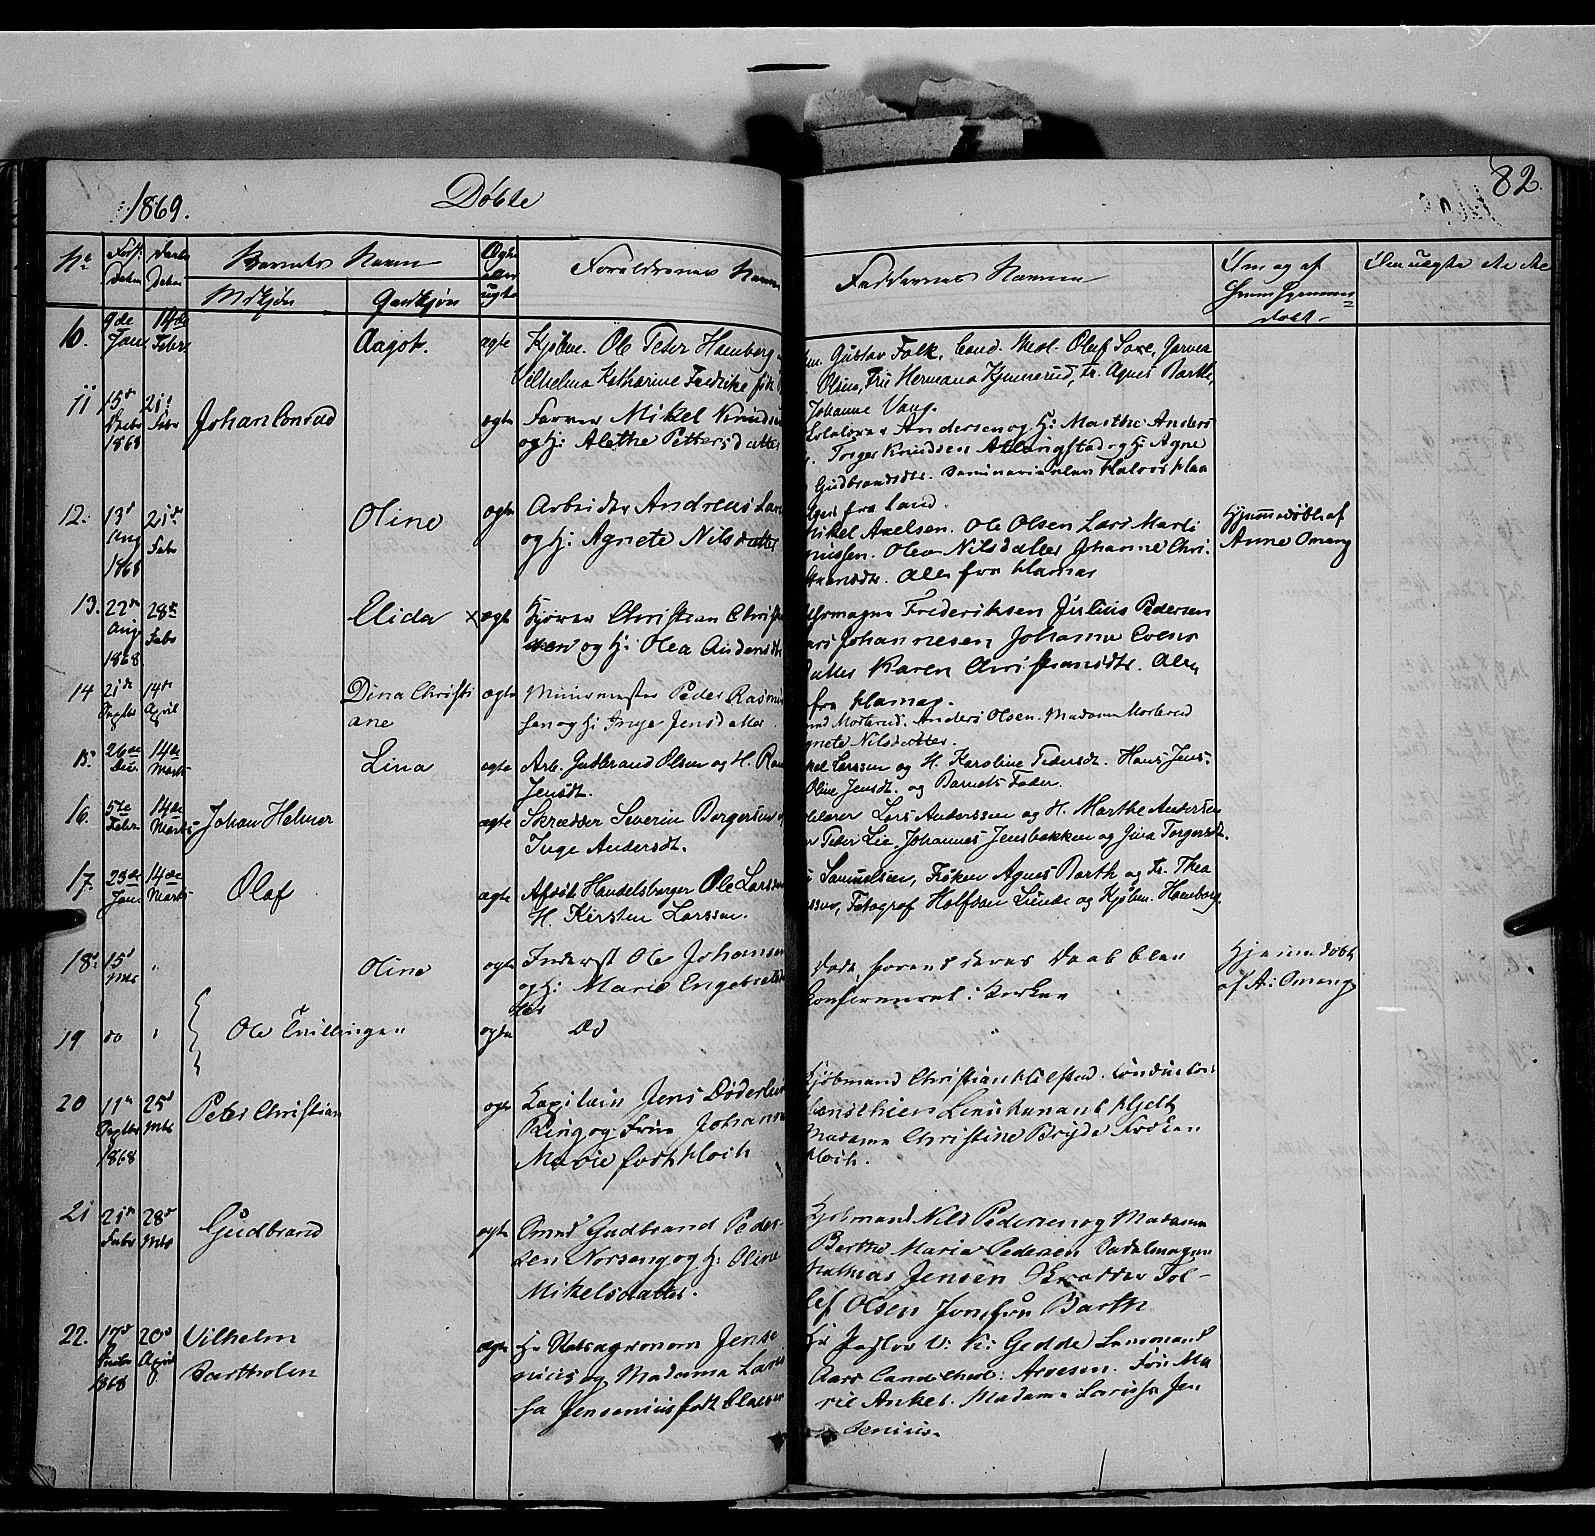 1869.
Døbte
82.
No
Føds: Daten
Daabs Daten
Barnets Navn
Mdkjøn
Qvdkjøn
Ægte eller uægte
Forældrenes Navne
Faddernes Navne
Om og af hvem hjemmedøbt
10. 9de Jan 14de Febr. Aagot. ægte Kjøbm. Ole Peter Hamborg
Vilhelma Katharine Fredrike født
Gustav Falk, Cand. Med. Oluf Saxe, Garver
Olsen, Frk. Agnes Barth,
Johanne Vang.
11 15de 1868 21de Febr Johan Conrad ægte Farver Mikel Knudsen
og H: Alethe Pettersdatter
Andersen og H: Marthe Anders
Torger Knudsen og H: Agne
Gudbrandsdtr. Seminarieelev Halvor
fra Land.
12. 13d Aug 1868 21de Febr Oline ægte Arbeider Andreas Lars
og H: Agnete Nilsdatter
Mikel Axelsen. Ole Olsen Lars Marti
nussen. Olea Nilsdatter Johanne Chri
stiansdtr. Alle fra Hamar
Hjemmedøbt af
Anne Omang
13. 22de Aug 1868 28de Febr Elida × ægte Kjører Christian Christi
ansen og H: Olea Andersdtr
Frederiksen Julius Pedersen
Lars Johannesen Johanne Evens
datter Karen Christiansdtr. Alle
fra Hamar.
14 21de Septbr 14de April Dina Christi
ane ægte Murermester Peder Rasmus
sen og H: Inge Jensdatter
Morterud. Anders Olsen. Madame Morterud
Agnete Nilsdatter.
15. 26de 14de Marts Lina ægte Arb. Gudbrand Olsen og H.
Jensdt.
Larssen og H. Karoline Pedersdt. Hans Jens-
Oline Jensdt. og Barnets Fader.
16. 5te Febr. 14de Marts Johan Helmer ægte Skrædder Severin Borgersen
Inge Andersdt.
Lars Anderssen og H. Marthe Andersen
Peder Lie, Johannes Jensbakken og Gina Torgersdt.
17. 23de Jan. 14de Marts Olaf ægte Afdøde Handelsborger Ole Larssen
H. Kirsten Larssen.
Samuelsen, Frøken Agnes Barth og Fr. Thea
Larssen, Fotograf Halfdan Linde og Kjøbm. Hamborg
18. 15d Mts Oline ægte Inderst Ole Johansen
og H: Marie Engebrets
dtr
Døde, førend deres Daab blev
Confirmeret i Kirken
Hjemmedøbt
af A: Omang
19 do Ole Tvillinger ægte Do
20 11te Septbr 1868 25d Mts Peter Christian ægte Kapitain Jens Døderlein
Ring og Frue Johanne
Marie født Koch
Kjøbmand Christian Hilstad. Conducteur
Lieutenant Hjelt
Madame Christine Bryde Frøken
Koch.
21 21de Febr 28de Mts Gudbrand ægte Gudbrand Peder
sen Norseng og H: Oline
Mikelsdatter.
Kjøbmand Nils Pedersen og Madame
Berthe Marie Pedersen Sadelmager
Mathias Jensen Skrædder Tol-
lef Olsen Jomfru Barth
22. 17de 1868 20de April Vilhelm
Bartholin ægte Hr Statsagronom Jense
nius og Madame Laris
sa Jensenius født Claesen
Hr Pastor V: K: Gedde Lensmand
Aars Cand theol: Arvesen. Frk: Ma
rie Anker. Madame Larissa Jen
senius.